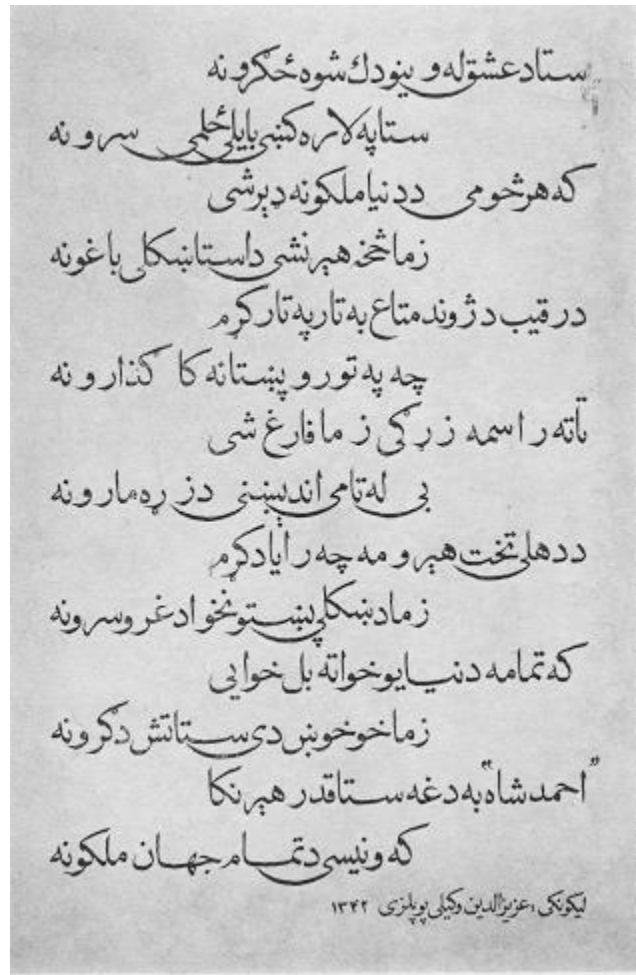 ستا د عشق له وینو ډك شوه ځګرونه
ستا په لاره کښی بایلی ځلمی سرونه
که هر څو می د دنیا ملکونه ډېر شی
زما څخه هېر نشی دا ستا ښکلی باغونه
د رقیب د ژوند متاع به تار په تار کړم
چه په تورو پښتانه کا ګذارونه
تا ته راسمه زړګی زما فارغ شی
بی له تا می اندېښنی د زړه مارونه
د دهلی تخت هېرومه چه را یاد کړم
زما د ښکلی پښتونخوا د غرو سرونه
که تمامه دنیا یو خوا ته بل خوا یی
زما خو خوښ دی ستا تش ډګرونه
"احمد شاه" به دغه ستا قدر هېر نکا
که ونیسی د تمام جهان ملکونه
لیکونکی، عزیزالدین وکیلی پوپلزی ۱۳۴۲